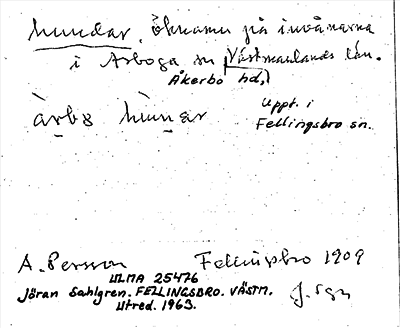 hundar, öknamn på invånarna
i Arboga sn Västmanlands län.
Åkerbo hd,
Uppt. i
àrbo hùnar
Fellingsbro sn.
A. Persson Fellingsbro 1909
ULMA 25476
Jöran Sahlgren. FELLINGSBRO. VÄSTM.
Utred. 1963.
J. Sgn